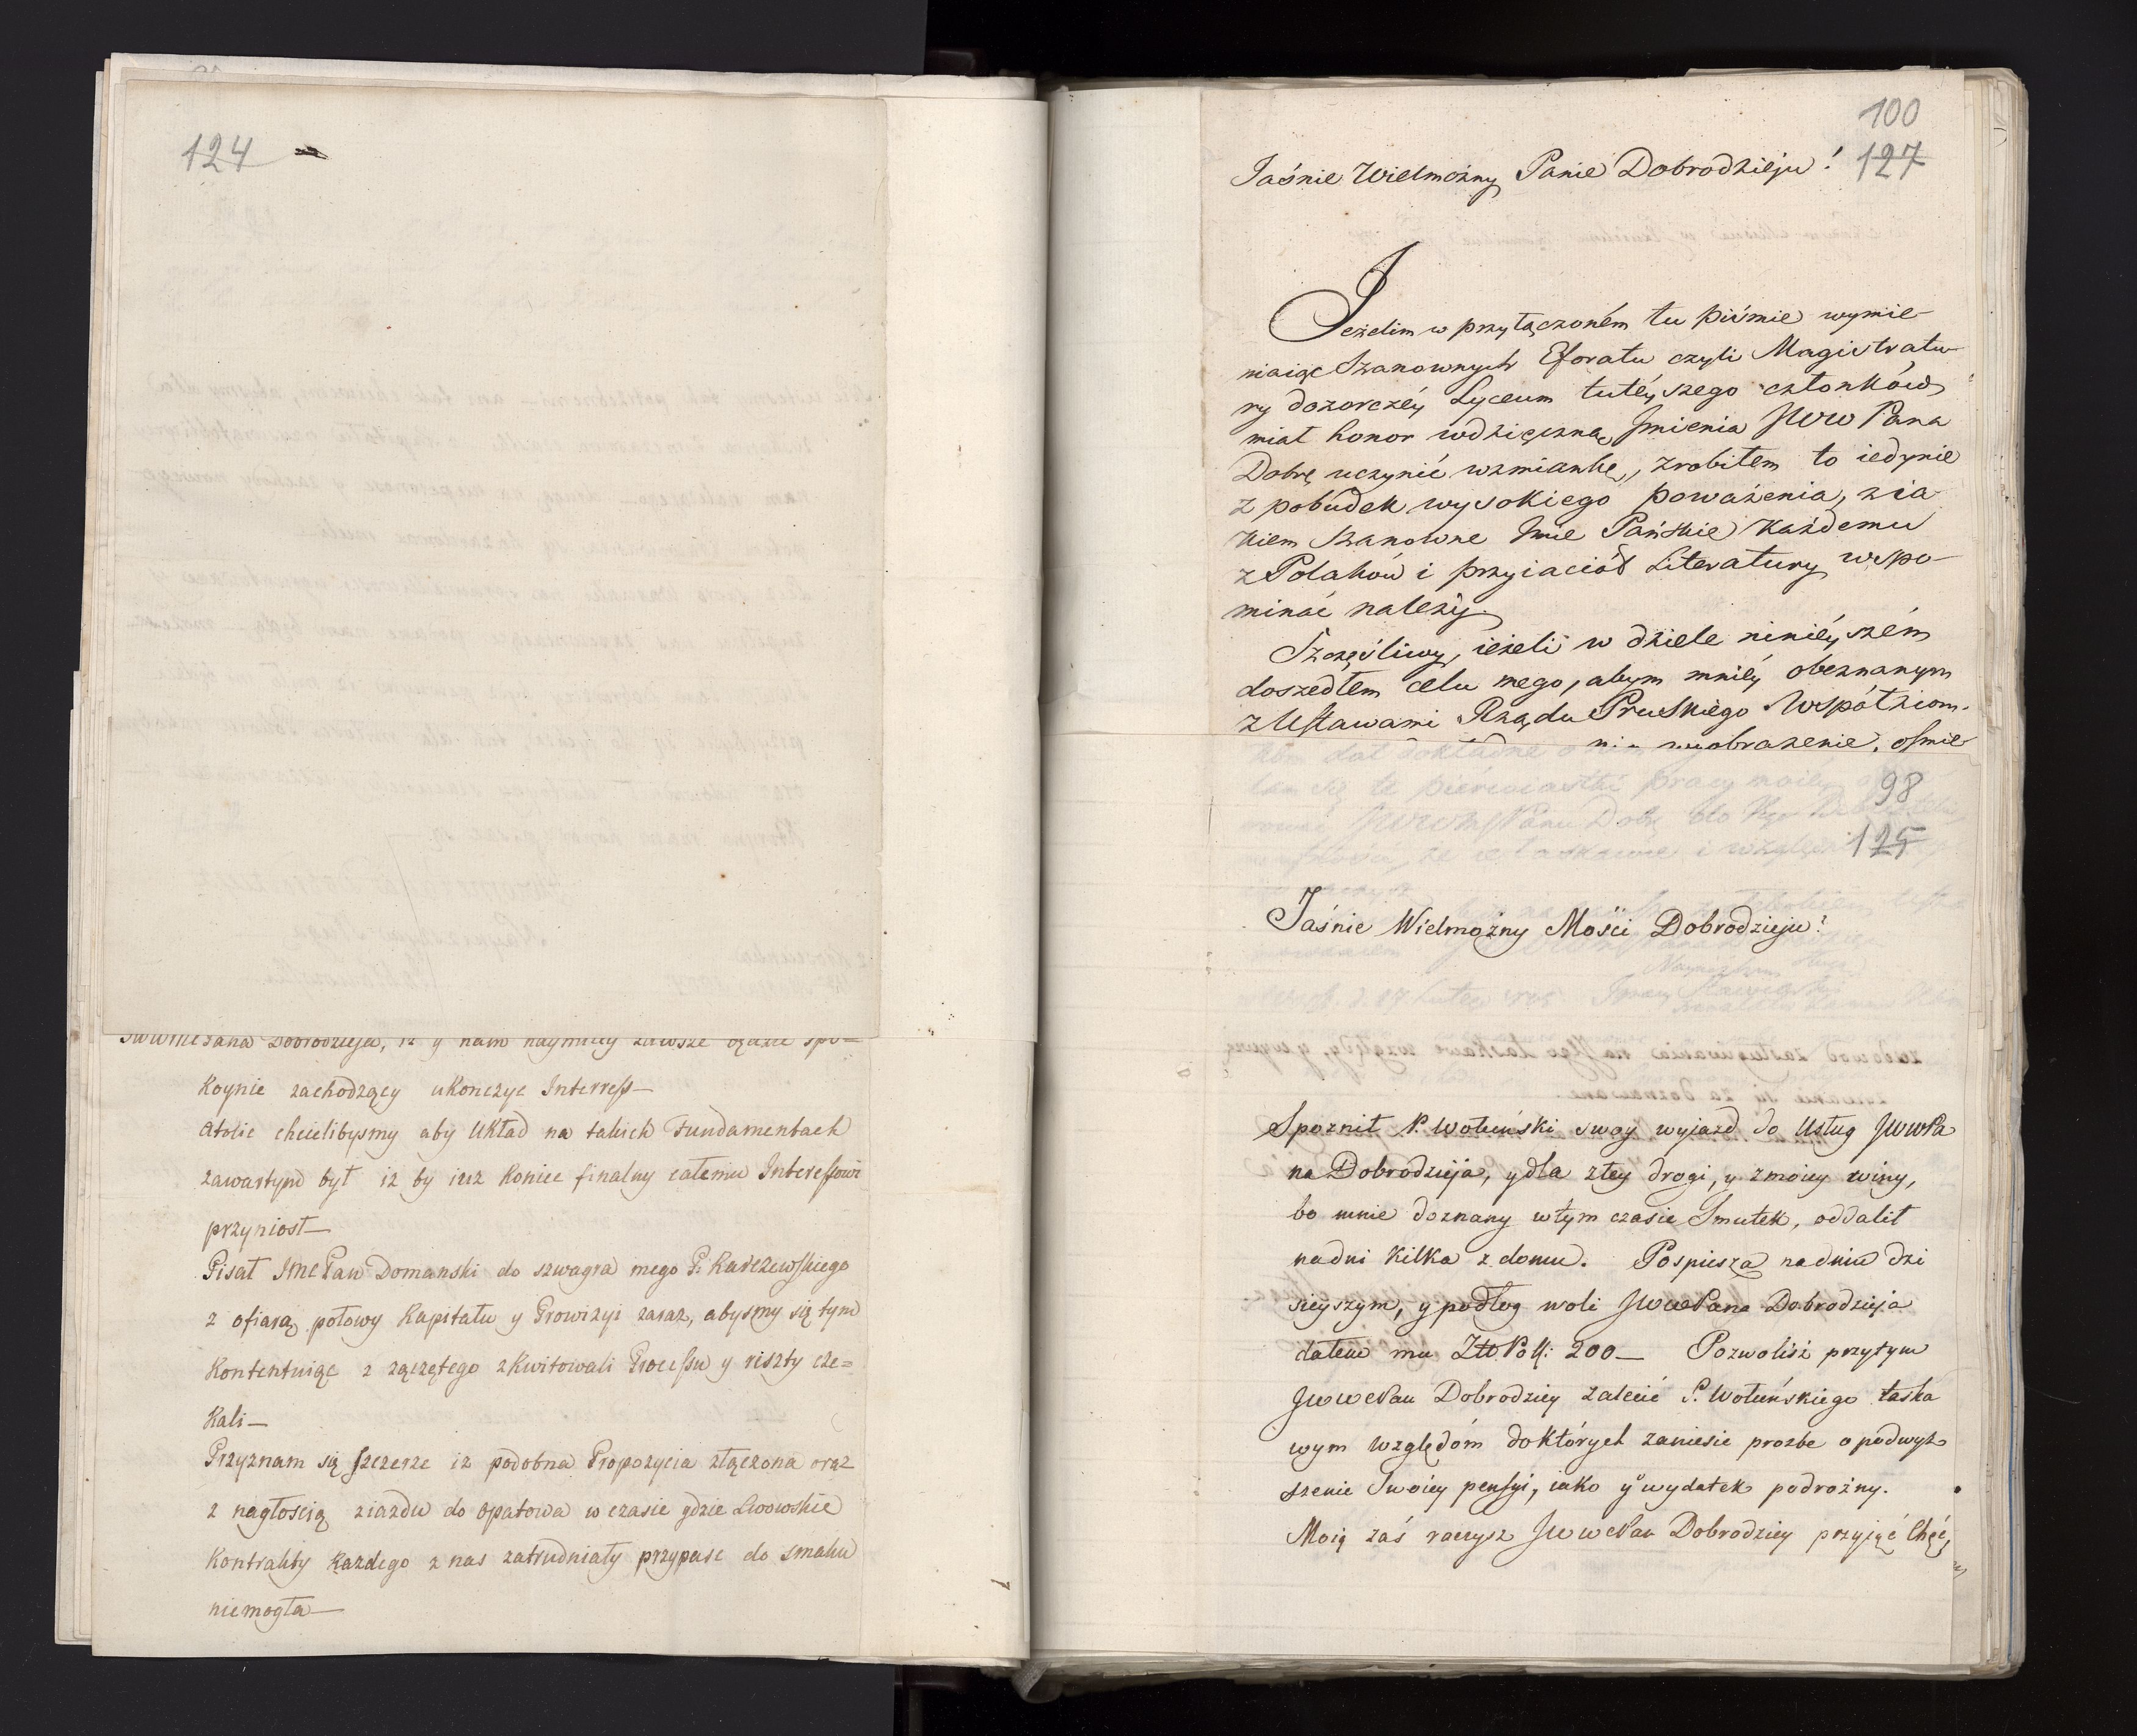 124
JWWMcPana Dobrodzieja, iż y nam naymiley zawsze będzie spo=
koynie zachodzący ukonczyc Interress—
atolic chcielibysmy aby Układ na takich Fundamentach
zawartym był iż by iuz koniec finalny całemu Interessowi
przyniosł—
Pisał JmcPan Domanski do szwagra mego P. Karczewskiego
z ofiarą połowy Kapitału y Prowizyi zaraz, abysmy się tym
kontentuiąc z zączętego zkwitowali Processu y reszty cze=
kali—
Przyznam się szczerze iż podobna Propozycia złączona oraz
z nagłoscią ziazdu do Opatowa w czasie gdzie Lwowskie
Kontrakty każdego z nas zatrudniały przypasc do smaku
niemogła—
100
127
Jaśnie Wielmożny Panie Dobrodzieju!
Jeżelim w przyłączoném tu piśmie wymie-
niaiąc Szanownych Eforatu czyli Magistratu-
ry dozorczéy Lyceum tutéyszego członków
miał honor wdzięczną Jmienia JWW Pana
Dobrę uczynić wzmiankę, zrobiłem to iedynie
z pobudek wysokiego poważenia, z ia-
kiem szanowne Jmie Pańskie każdemu
z Polaków i przyiaciół Literatury wspo-
minać należy.
Szczęśliwy, ieżeli w dziele ninieyszém
doszedłem celu mego, abym mniéy obeznanym
z Ustawami Rządu Pruskiego Współziom-
kom dał dokładne o nim wyobrażenie, ośmie-
lam się te pierwiastki pracy moiéy
98
125
Jaśnie Wielmożny Mości Dobrodzieju!
Spoznił P. Wołuński swoy wyjazd do Usług JWWPa
na Dobrodzieja, y dla złey drogi, y z moiey winy,
bo mnie doznany w tym czasie Smutek, oddalił
na dni kilka z domu. Pospiesza na dniu dzi
sieyszym, y podług woli JWWPana Dobrodzieja
dałem mu Zło Pols: 200— Pozwolisz przytym
JWWPan Dobrodziey zalecić P. Wołuńskiego łaska
wym względóm do których zaniesie prozbe o podwyż
szenie Swoiey pensyi, iako y wydatek podrożny.
Moią zaś raczysz JWWPan Dobrodziey przyjąć Chęć,